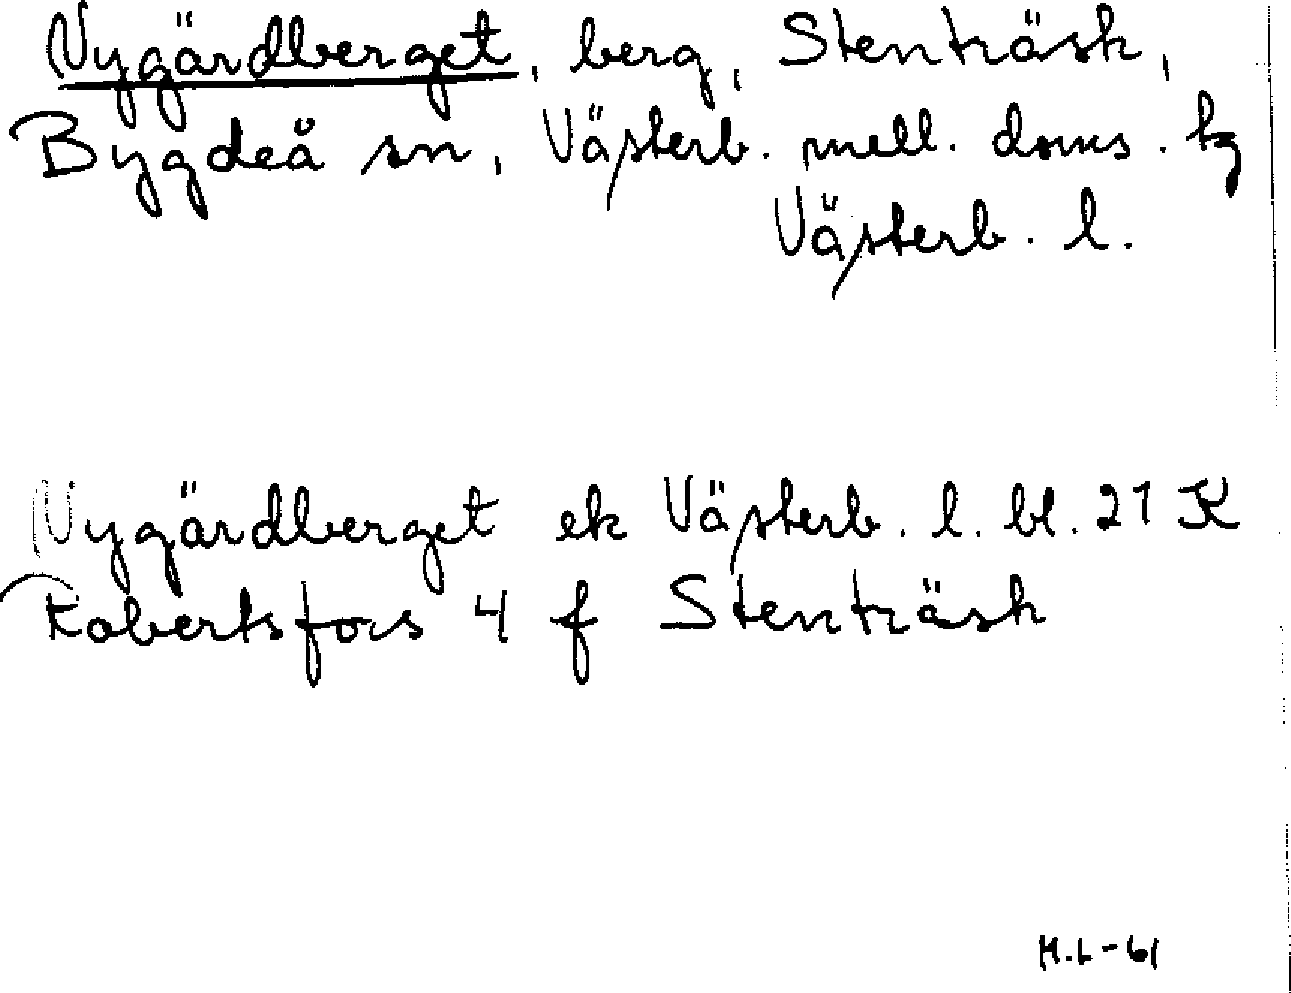 Nygärdberget, berg, Stenträsk,
Bygdeå sn, Västerb. mell. doms. tg
Västerb. l.
Nygärdberget ek Västerb. l. bl. 21 K
Robertsfors 4 f Stenträsk
H.L-61